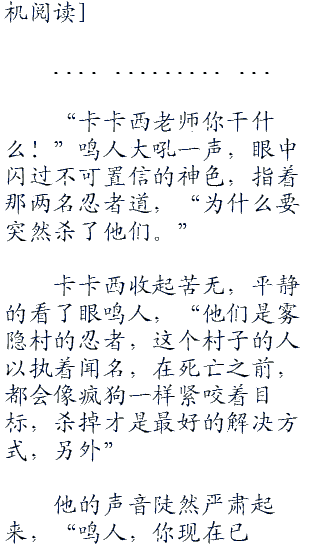 机阅读]
.... ......... ...
“卡卡西老师你干什
么！”鸣人大吼一声，眼中
闪过不可置信的神色，指着
那两名忍者道，“为什么要
突然杀了他们。”
卡卡西收起苦无，平静
的看了眼鸣人，“他们是雾
隐村的忍者，这个村子的人
以执着闻名，在死亡之前，
都会像疯狗一样紧咬着目
标，杀掉才是最好的解决方
式，另外”
他的声音陡然严肃起
来，“鸣人，你现在已